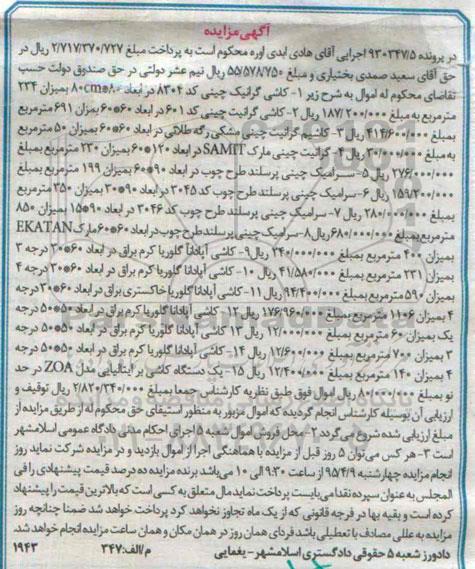 آگهی مزایده
در پرونده ۹۳۰۳۴۷/۵ اجرایی آقای هادی ابدی اوره محکوم است به پرداخت مبلغ ۲/۷۱۷/۳۷۰/۷۲۷ ریال در
حق آقای سعید صمدی بختیاری و مبلغ ۵۵/۵۷۸/۷۵۰ ریال نیم عشر دولتی در حق صندوق دولت حسب
تقاضای محکوم له اموال به شرح زیر ۱- کاشی گرانیک چینی کد ۸۳۰۴ در ابعاد ۸۰*۸۰cm بمیزان ۲۳۴
مترمربع به مبلغ ۱۸۷/۲۰۰/۰۰۰ ریال ۲- کاشی گرانیت چینی کد ۶۰۱ در ابعاد ۶۰*۶۰ بمیزان ۶۹۱ مترمربع
بمبلغ ۴۱۴/۶۰۰/۰۰۰ ریال ۳- کاشی گرانیت چینی مشکی رگه طلائی در ابعاد ۶۰*۶۰ بمیزان ۵۰ مترمربع
به مبلغ ۳۰/۰۰۰/۰۰۰ ریال ۴- گرانیت چینی مارک SAMIT در ابعاد ۱۲۰*۶۰ بمیزان ۲۳۰ مترمربع بمبلغ
۲۷۶/۰۰۰/۰۰۰ ریال ۵- سرامیک چینی پرسلند طرح چوب در ابعاد ۹۰*۶۰ بمیزان ۱۹۹ مترمربع بمبلغ
۱۵۹/۲۰۰/۰۰۰ ریال ۶- سرامیک چینی پرسلند طرح چوب کد ۳۰۴۵ در ابعاد ۹۰*۳۰ بمیزان ۳۵۰ مترمربع
بمبلغ ۲۸۰/۰۰۰/۰۰۰ ریال ۷- سرامیک چینی پرسلند طرح چوب کد ۳۰۴۶ در ابعاد ۹۰*۱۵ بمیزان ۸۵۰
مترمربع بمبلغ ۶۸۰/۰۰۰/۰۰۰ ریال ۸- سرامیک چینی پرسلند طرح چوب در ابعاد ۶۰*۶۰ مارک EKATAN
بمیزان ۴۰۰ مترمربع بمبلغ ۲۴۰/۰۰۰/۰۰۰ ریال ۹- کاشی آپادانا گلوریا کرم براق در ابعاد ۶۰*۳۰ درجه ۳
بمیزان ۲۳۱ مترمربع بمبلغ ۴۱/۵۸۰/۰۰۰ ریال ۱۰- کاشی آپادانا گلوریا کرم براق در ابعاد ۶۰*۳۰ درجه ۴
بمیزان ۵۹۰ مترمربع بمبلغ ۹۴/۴۰۰/۰۰۰ ریال ۱۱- کاشی آپادانا گلوریا خاکستری براق در ابعاد ۶۰*۳۰ درجه
۴ بمیزان ۱۱۰۶ مترمربع بمبلغ ۱۷۶/۹۶۰/۰۰۰ ریال ۱۲- کاشی آپادانا گلوریا کرم براق در ابعاد ۵۰*۵۰ درجه
یک بمیزان ۶۰ مترمربع بمبلغ ۱۲/۰۰۰/۰۰۰ ریال ۱۳ کاشی آپادانا گلوریا کرم براق در ابعاد ۵۰*۵۰ درجه
۳ بمیزان ۷۰ مترمربع بمبلغ ۱۲/۶۰۰/۰۰۰ ریال ۱۴- کاشی آپادانا گلوریا کرم براق در ابعاد ۵۰*۵۰ درجه
۴ بمیزان ۱۴۰ مترمربع بمبلغ ۱۲/۴۰۰/۰۰۰ ریال ۱۵- یک دستگاه کاشی بر ایتالیایی مدل ZOA در حد
نو بمبلغ ۸۰/۰۰۰/۰۰۰ ریال اموال فوق طبق نظریه کارشناس جمعا بمبلغ ۲/۸۲۰/۳۴۰/۰۰۰ ریال توقیف و
ارزیابی آن بوسیله کارشناس انجام گردیده که اموال مزبور به منظور استیفای حق محکوم له از طریق مزایده از
مبلغ ارزیابی شده شروع می گردد ۲- محل فروش اموال شعبه ۵ اجرای احکام مدنی دادگاه عمومی اسلامشهر
است ۳- هر کس می توان ۵ روز قبل از مزایده با هماهنگی اجرا از اموال بازدید و در مزایده شرکت نماید روز
انجام مزایده چهارشنبه ۹۵/۴/۹ از ساعت ۹:۳۰ الی ۱۰ می باشد برنده مزایده ده درصد قیمت پیشنهادی را فی
المجلس به عنوان سپرده نقدا می بایست پرداخت نماید مال متعلق به کسی است که بالاترین قیمت را پیشنهاد
کرده است و بقیه بها در فرجه قانونی که از یک ماه تجاوز نخواهد کرد پرداخت خواهد شد ضمنا چنانچه روز
مزایده به عللی مصادف با تعطیلی باشد فردای همان روز در همان مکان و همان ساعت مزایده انجام خواهد شد.
دادورز شعبه ۵ حقوقی دادگستری اسلامشهر- یغمایی م/الف:۳۴۷ ۱۹۴۳